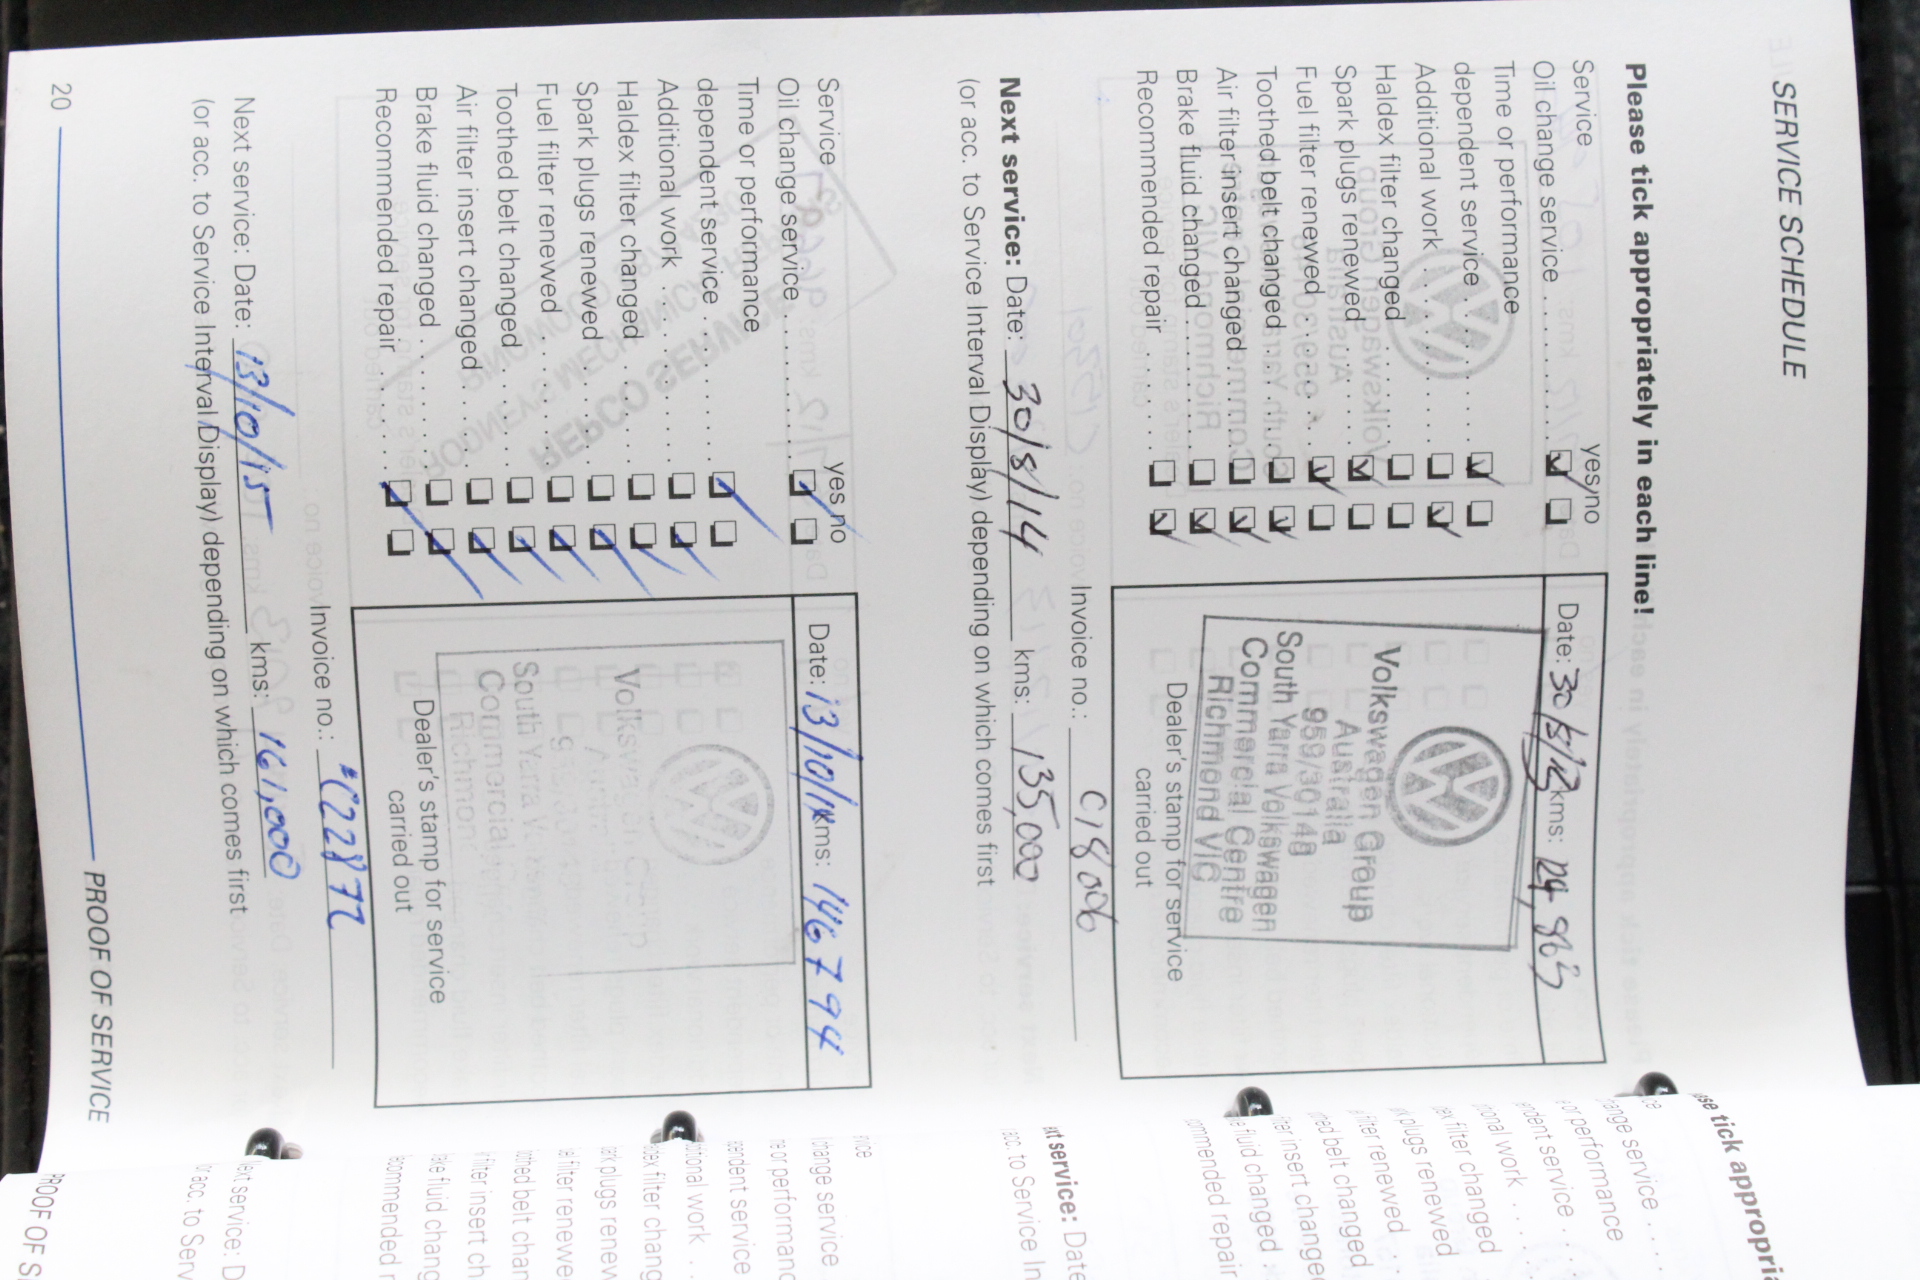 SERVICE SCHEDULE
Please tick appropriately in each line!
Service yes/no
Oil change service
Time or performance
dependent service
Additional work
Haldex filter changed
Spark plugs renewed
Fuel filter renewed
Toothed belt changed
Air filter insert changed
Brake fluid changed
Recommended repair
Date: 30/8/13 kms: 124,863
Volkswagen Group
Australia
959/3014a
South Yarra Volkswagen
Commercial Centre
Richmond VIC
Dealer's stamp for service
carried out
Invoice no.: C18006
Next service: Date: 30/8/14 kms: 135,000
(or acc. to Service Interval Display) depending on which comes first
Service yes no
Oil change service
Time or performance
dependent service
Additional work
Haldex filter changed
Spark plugs renewed
Fuel filter renewed
Toothed belt changed
Air filter insert changed
Brake fluid changed
Recommended repair
Date: 13/10/14 kms: 146794
South Yarra
Commercial
Richmond
Dealer's stamp for service
carried out
Invoice no.: C22872
Next service: Date: 13/10/15 kms: 161,000
(or acc. to Service Interval Display) depending on which comes first
20 PROOF OF SERVICE